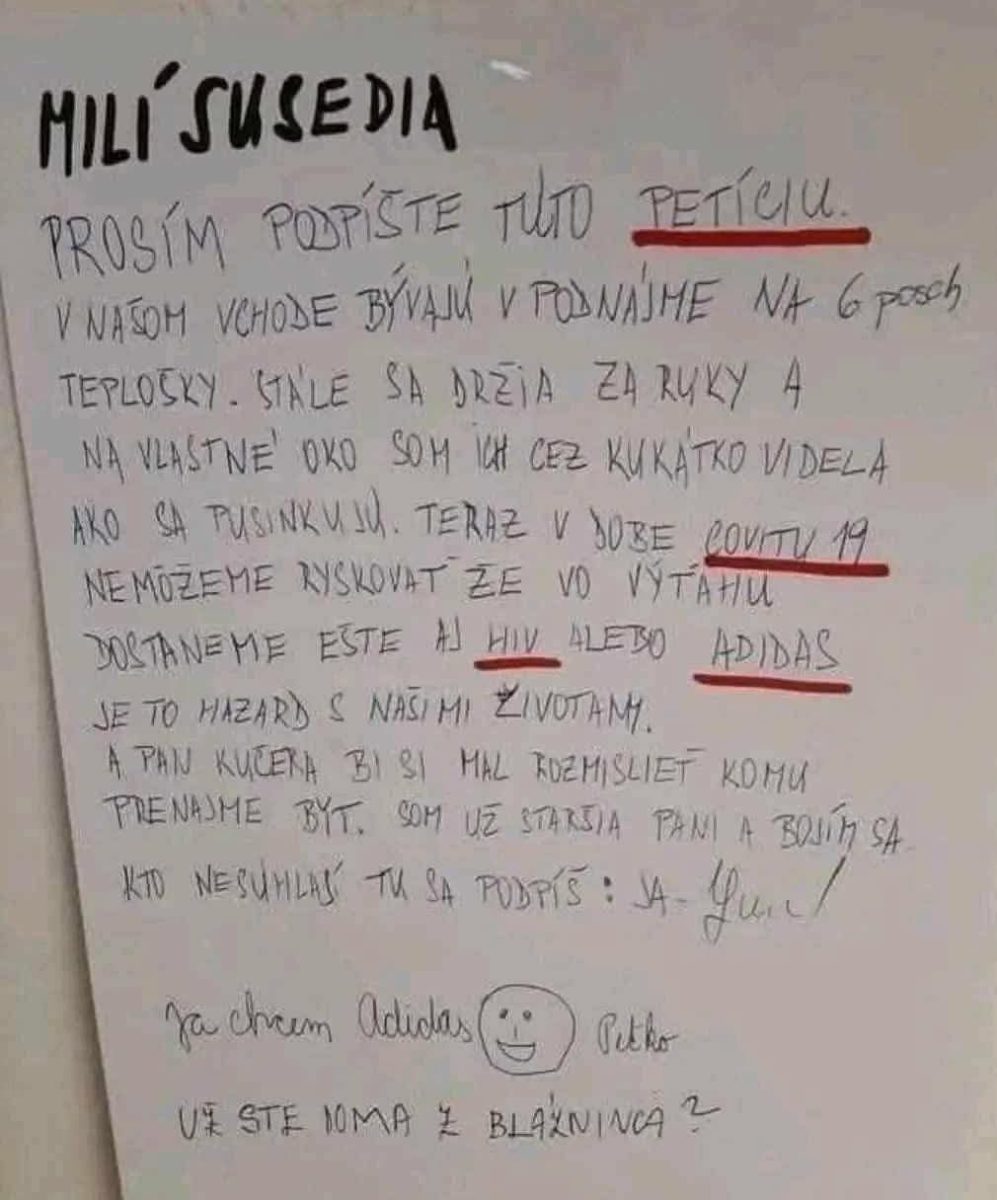 MILÍ SUSEDIA
PROSÍM PODPÍŠTE TÚTO PETÍCIU.
V NAŠOM VCHODE BÝVAJÚ V PODNÁJME NA 6 posch
TEPLOŠKY. STÁLE SA DRŽIA ZA RUKY A
NA VLASTNÉ OKO SOM ICH CEZ KUKÁTKO VIDELA
AKO SA PUSINKUJÚ. TERAZ V DOBE COVITU 19
NEMÔŽEME RYSKOVAŤ ŽE VO VÝŤAHU
DOSTANEME EŠTE AJ HIV ALEBO ADIDAS
JE TO HAZARD S NAŠIMI ŽIVOTAMY.
A PAN KUČERA BI SI MAL ROZMISLIEŤ KOMU
PRENAJME BYT. SOM UŽ STARŠIA PANI A BOJÍM SA
KTO NESÚHLASÍ TU SA PODPÍŠ: JA-
Ja chcem Adidas Peťko
UŽ STE DOMA Z BLÁZNINCA?